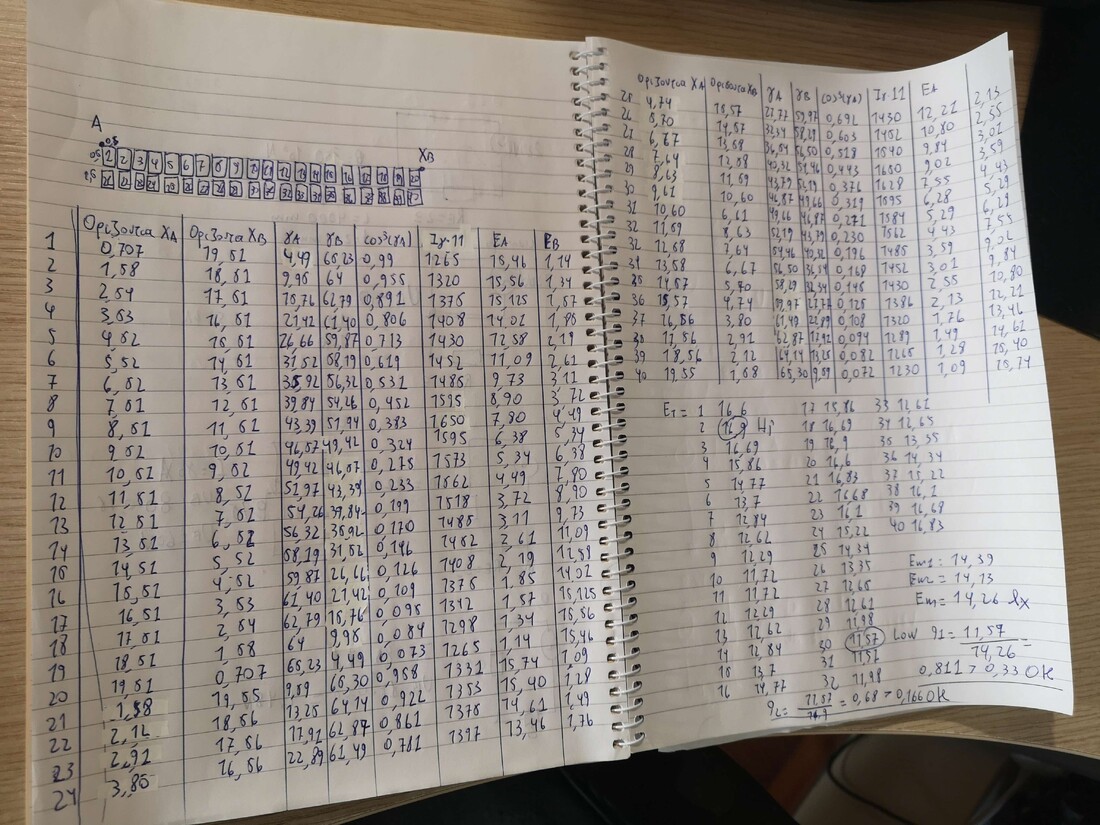 A
0,5
0,5 1 2 3 4 5 6 7 8 9 10 11 12 13 14 15 16 17 18 19 20 XB
Οριζοντια XA Οριζοντια XB γA γB cos³(γA) Iγ-11 EA EB
1 0,707 19,51 4,49 65,23 0,99 1265 15,46 1,14
2 1,58 18,51 9,98 64 0,955 1320 15,56 1,34
3 2,54 17,51 15,76 62,79 0,891 1375 15,125 1,57
4 3,53 16,51 21,42 61,40 0,806 1408 14,01 1,85
5 4,52 15,51 26,66 59,87 0,713 1430 12,58 2,19
6 5,52 14,51 31,52 58,19 0,619 1452 11,09 2,61
7 6,52 13,51 35,92 56,32 0,531 1485 9,73 3,11
8 7,51 12,51 39,84 54,26 0,452 1595 8,90 3,72
9 8,51 11,51 43,39 51,94 0,383 1650 7,80 4,49
10 9,52 10,51 46,57 49,42 0,324 1595 6,38 5,34
11 10,51 9,52 49,42 46,57 0,275 1573 5,34 6,38
12 11,51 8,51 51,97 43,39 0,233 1562 4,49 7,80
13 12,51 7,51 54,26 39,84 0,199 1518 3,72 8,90
14 13,51 6,52 56,32 35,92 0,170 1485 3,11 9,73
15 14,51 5,52 58,19 31,52 0,146 1452 2,61 11,09
16 15,51 4,52 59,87 26,66 0,126 1408 2,19 12,58
17 16,51 3,53 61,40 21,42 0,109 1375 1,85 14,01
18 17,51 2,54 62,79 15,76 0,095 1342 1,57 15,125
19 18,51 1,58 64 9,98 0,084 1298 1,34 15,56
20 19,51 0,707 65,23 4,49 0,073 1265 1,14 15,46
21 1,58 19,55 9,59 65,30 0,958 1331 15,74 1,09
22 2,12 18,56 13,25 64,14 0,922 1353 15,40 1,28
23 2,91 17,56 17,92 62,87 0,861 1375 14,61 1,49
24 3,80 16,56 22,89 61,49 0,781 1397 13,46 1,76
Οριζοντια XA Οριζοντια XB γA γB cos³(γA) Iγ-11 EA
25 4,74 15,57 27,77 59,97 0,692 1430 12,21 2,13
26 5,70 14,57 32,34 58,29 0,603 1452 10,80 2,55
27 6,67 13,58 36,54 56,50 0,518 1540 9,84 3,01
28 7,64 12,58 40,32 54,46 0,443 1650 9,02 3,59
29 8,63 11,59 43,79 52,19 0,376 1628 7,55 4,43
30 9,61 10,60 46,87 49,66 0,319 1595 6,28 5,29
31 10,60 6,61 49,66 46,87 0,271 1584 5,29 6,29
32 11,59 8,63 52,19 43,79 0,230 1562 4,43 7,55
32 12,58 7,64 54,46 40,32 0,196 1485 3,59 9,02
34 13,58 6,67 56,50 36,54 0,168 1452 3,01 9,84
35 14,57 5,70 58,29 32,34 0,145 1430 2,55 10,80
36 15,57 4,74 59,97 27,77 0,125 1386 2,13 12,21
37 16,56 3,80 61,49 22,89 0,108 1320 1,76 13,46
38 17,56 2,91 62,87 17,92 0,094 1289 1,49 14,61
39 18,56 2,12 64,14 13,25 0,082 1265 1,28 15,40
40 19,55 1,58 65,30 9,59 0,072 1230 1,09 15,74
ET = 1 16,6 17 15,86 33 12,61
2 16,9 Hi 18 16,69 34 12,65
3 16,69 19 16,9 35 13,35
4 15,86 20 16,6 36 14,34
5 14,77 21 16,83 37 15,22
6 13,7 22 16,68 38 16,1
7 12,84 23 16,1 39 16,68
8 12,62 24 15,22 40 16,83
9 12,29 25 14,34
10 11,72 26 13,35 Em1 = 14,39
11 11,72 27 12,65 Em2 = 14,13
12 12,29 28 12,61 Em = 14,26 lx
13 12,62 29 11,98
14 12,84 30 11,57 Low g1 = 11,57/14,26 =
15 13,7 31 11,57 0,811 > 0,33 OK
16 14,77 32 11,98
g2 = 11,57/16,9 = 0,68 > 0,166 OK